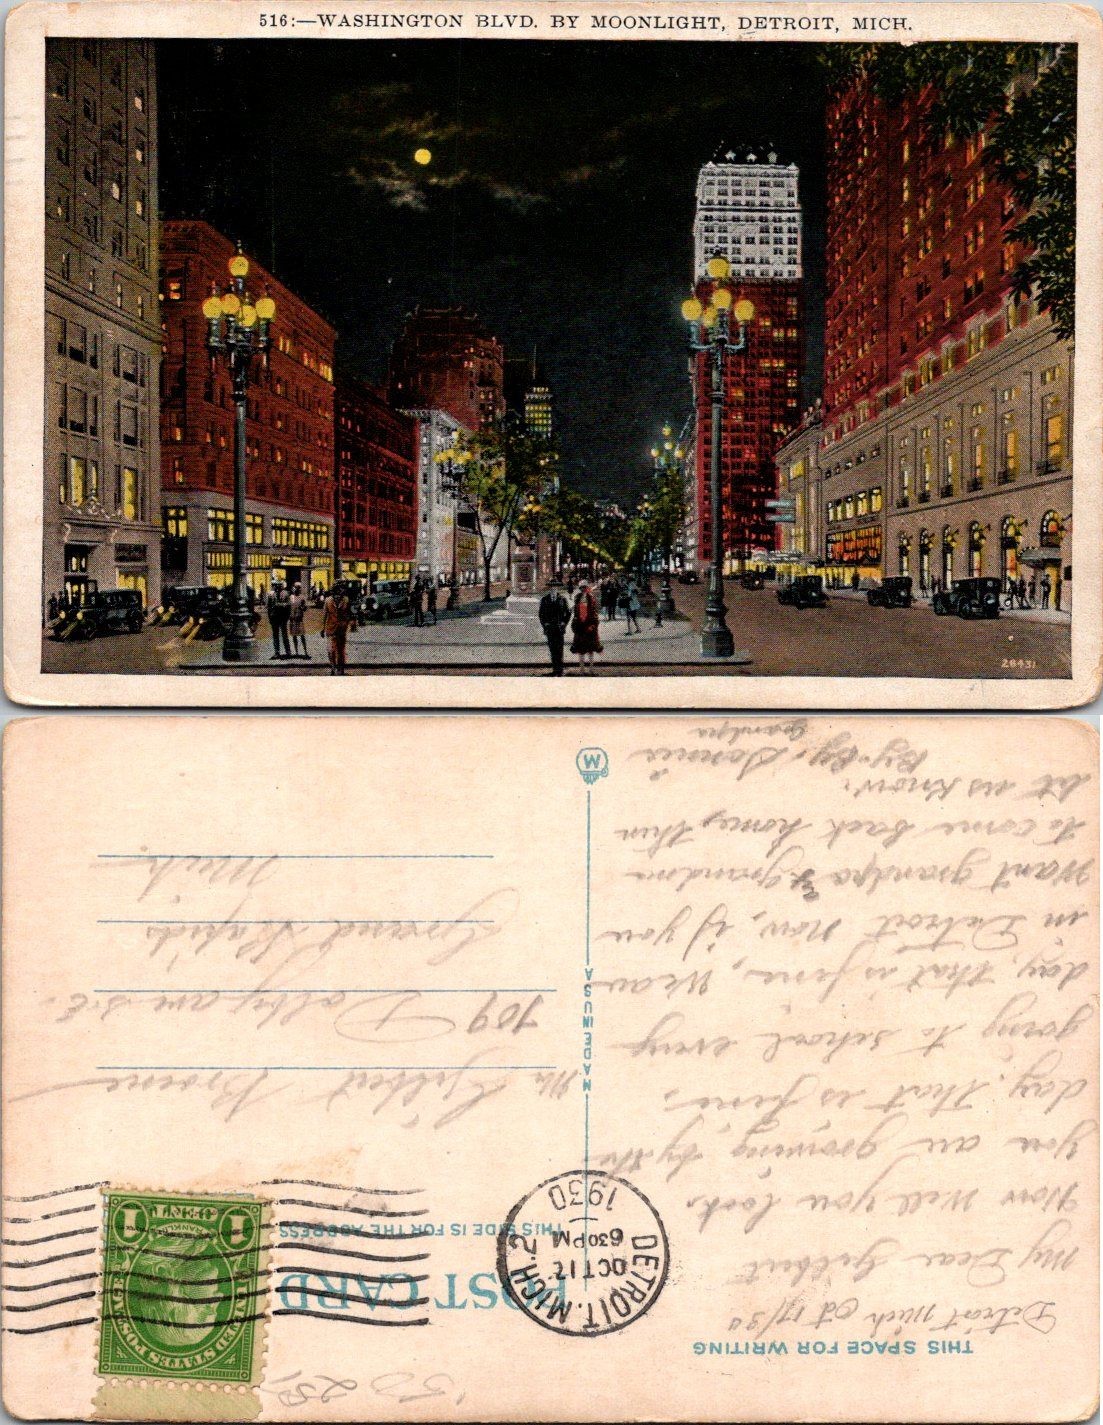 516:—WASHINGTON BLVD. BY MOONLIGHT, DETROIT, MICH.
26431
THIS SPACE FOR WRITING
Detroit Mich Oct 17/30
My Dear Gilbert
How Well you look.
you are growing by the
day. that is fine.
going to school every
day. that is fine, We are
in Detroit Now, if you
Want grandpa & grandma
to come back home, then
let us know.
By-By. Donnie
grandpa
MADE IN U.S.A.
POST CARD
THIS SIDE IS FOR THE ADDRESS
DETROIT, MICH. 2
OCT 17
630 PM
1930
1 FRANKLIN 1
Mr Gilbert
709 Dolbyam S.E.
Grand Rapids
Mich.